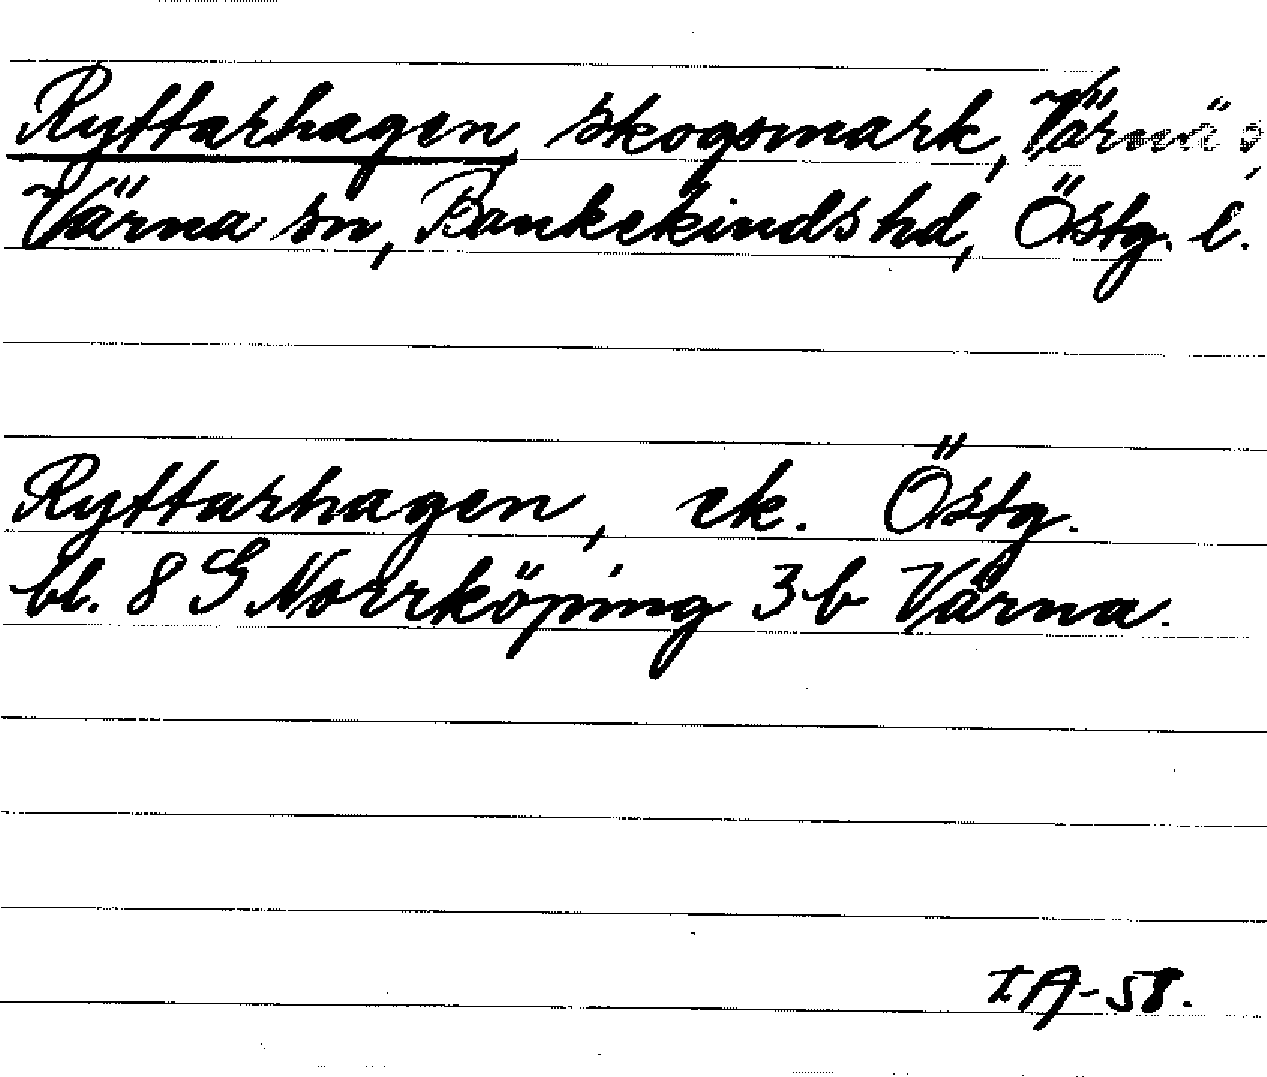 Ryttarhagen, skogsmark, Värnäs
Värna sn, Bankekinds hd, Östg. l.
Ryttarhagen, ek. Östg.
bl. 8 G Norrköping 3b Värna.
I.A-58.